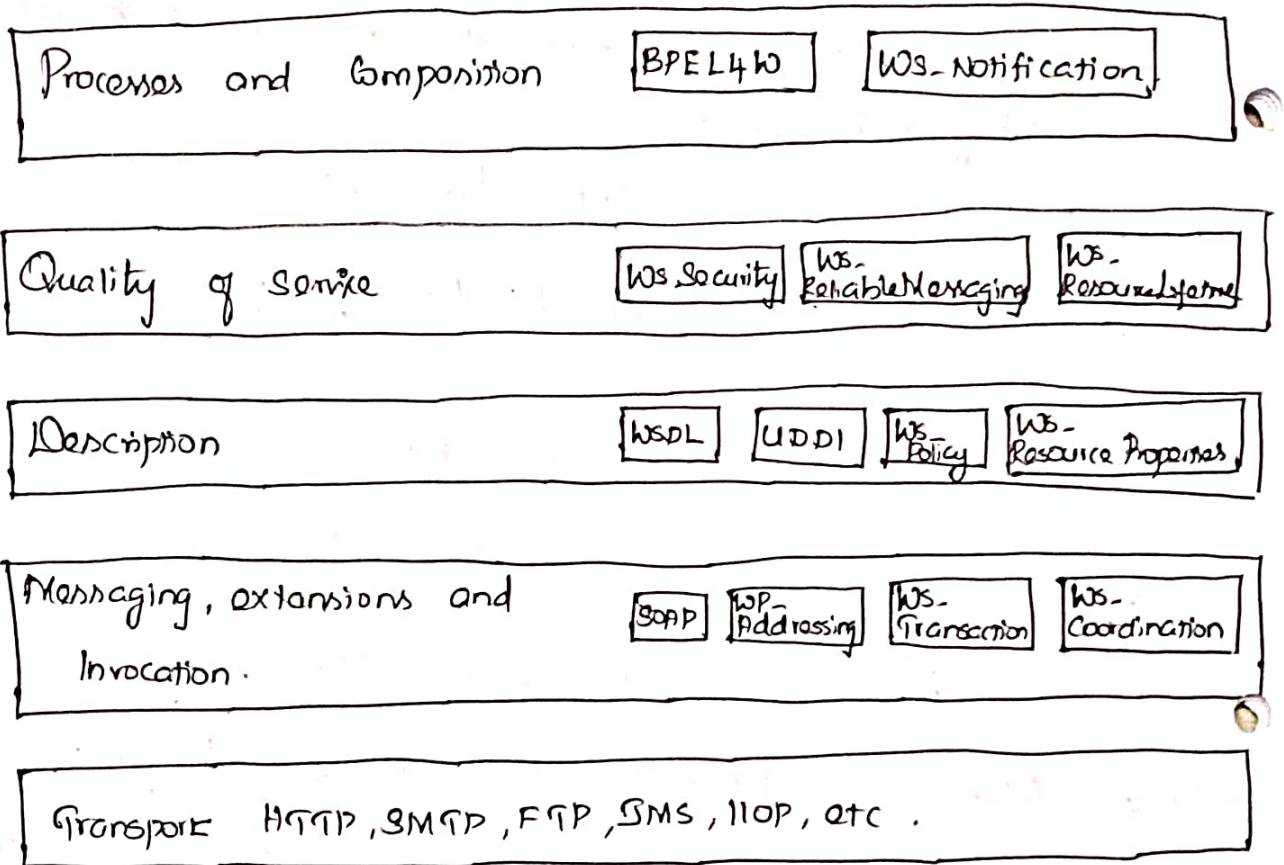 Processes and Composition
BPEL4W
WS-Notification
Quality of service
WS Security
WS-
ReliableMessaging
WS-
Description
WSDL
UDDI
WS-
Policy
WS-
Resource Properties
Messaging, extensions and
Invocation.
SOAP
WP-
Addressing
WS-
Transaction
WS-
Coordination
Transport HTTP, SMTP, FTP, JMS, IIOP, etc.